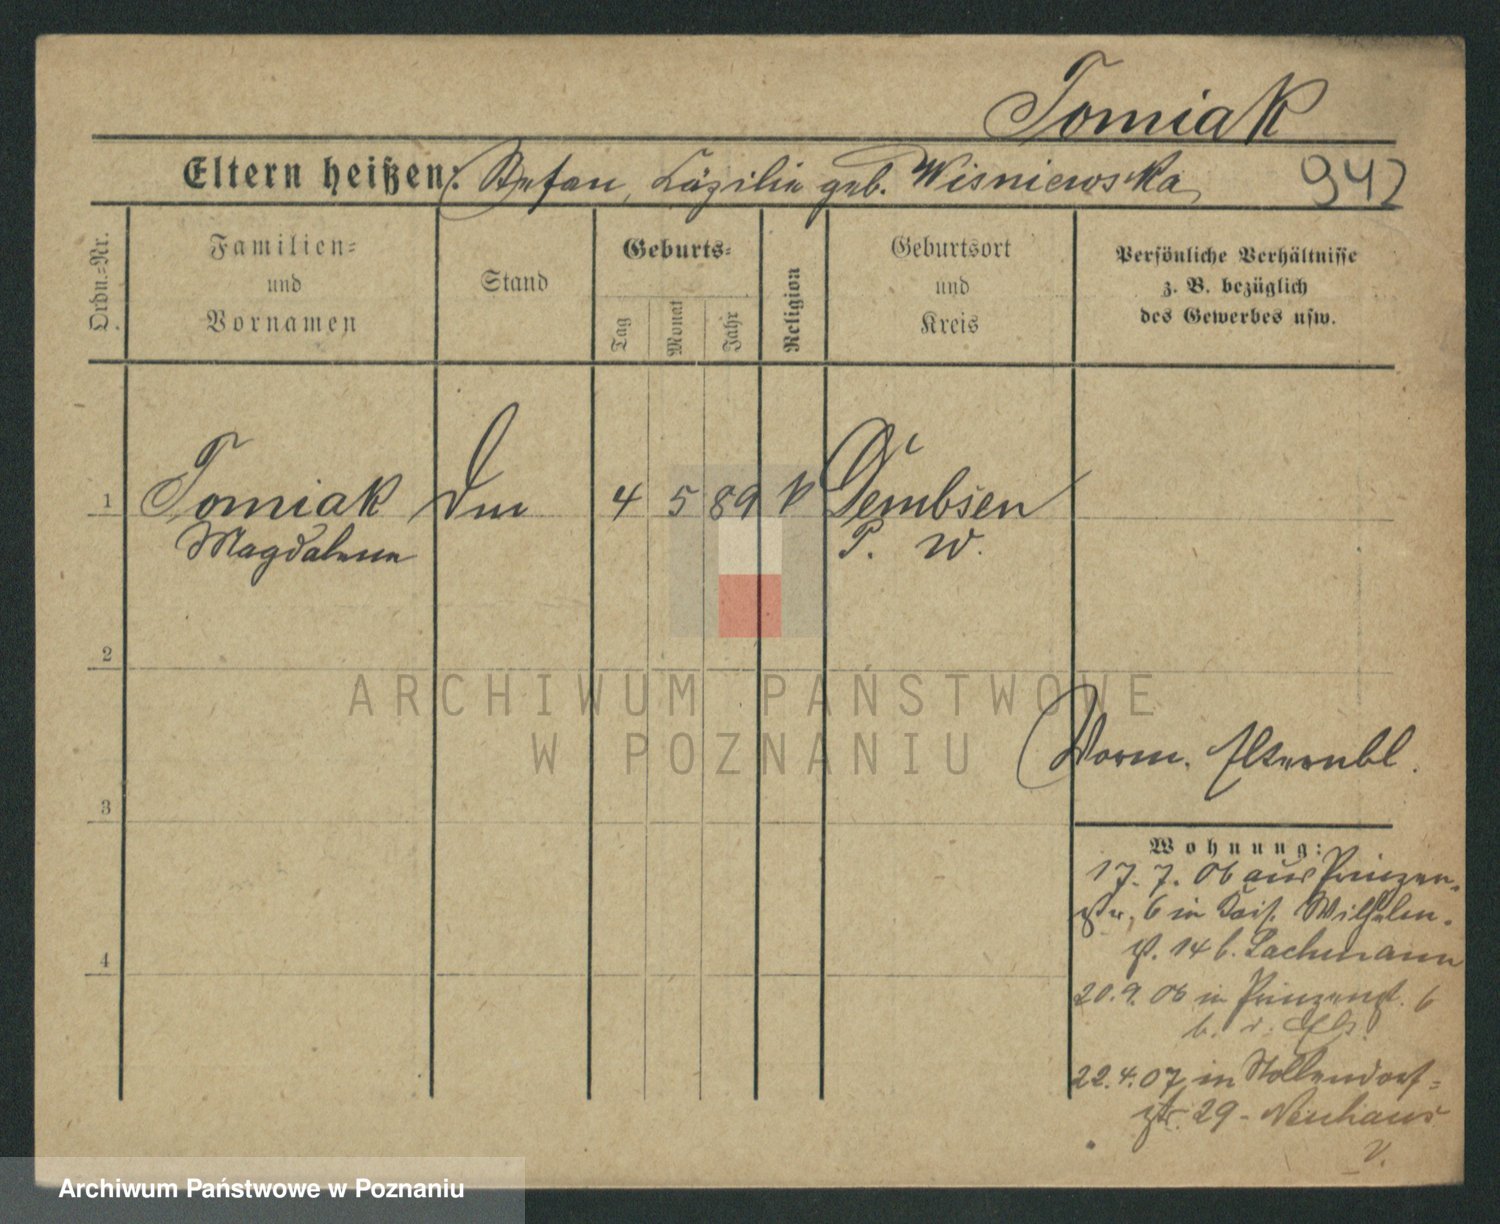 Tomiak
Eltern heißen: Stefan, Cäzilie geb. Wisniewska
942
Ordn.=Nr.
Familien=
und
Vornamen
Stand
Geburts=
Tag
Monat
Jahr
Religion
Geburtsort
und
Kreis
Persönliche Verhältnisse
z. B. bezüglich
des Gewerbes usw.
1 Tomiak 4 5 89 k Dembsen
Magdalena P. W.
2
ARCHIWUM PAŃSTWOWE
W POZNANIU
Vorm. Elternbl.
3
Wohnung:
17. 7. 06 aus Prinzen-
str. 6 in Kais. Wilhelm-
st. 14 b. Lachmann
4
20. 9. 06 in Prinzenst. 6
b. d. Elt.
22. 4. 07 in Nollendorf=
str. 29 - Neuhaus
v.
Archiwum Państwowe w Poznaniu